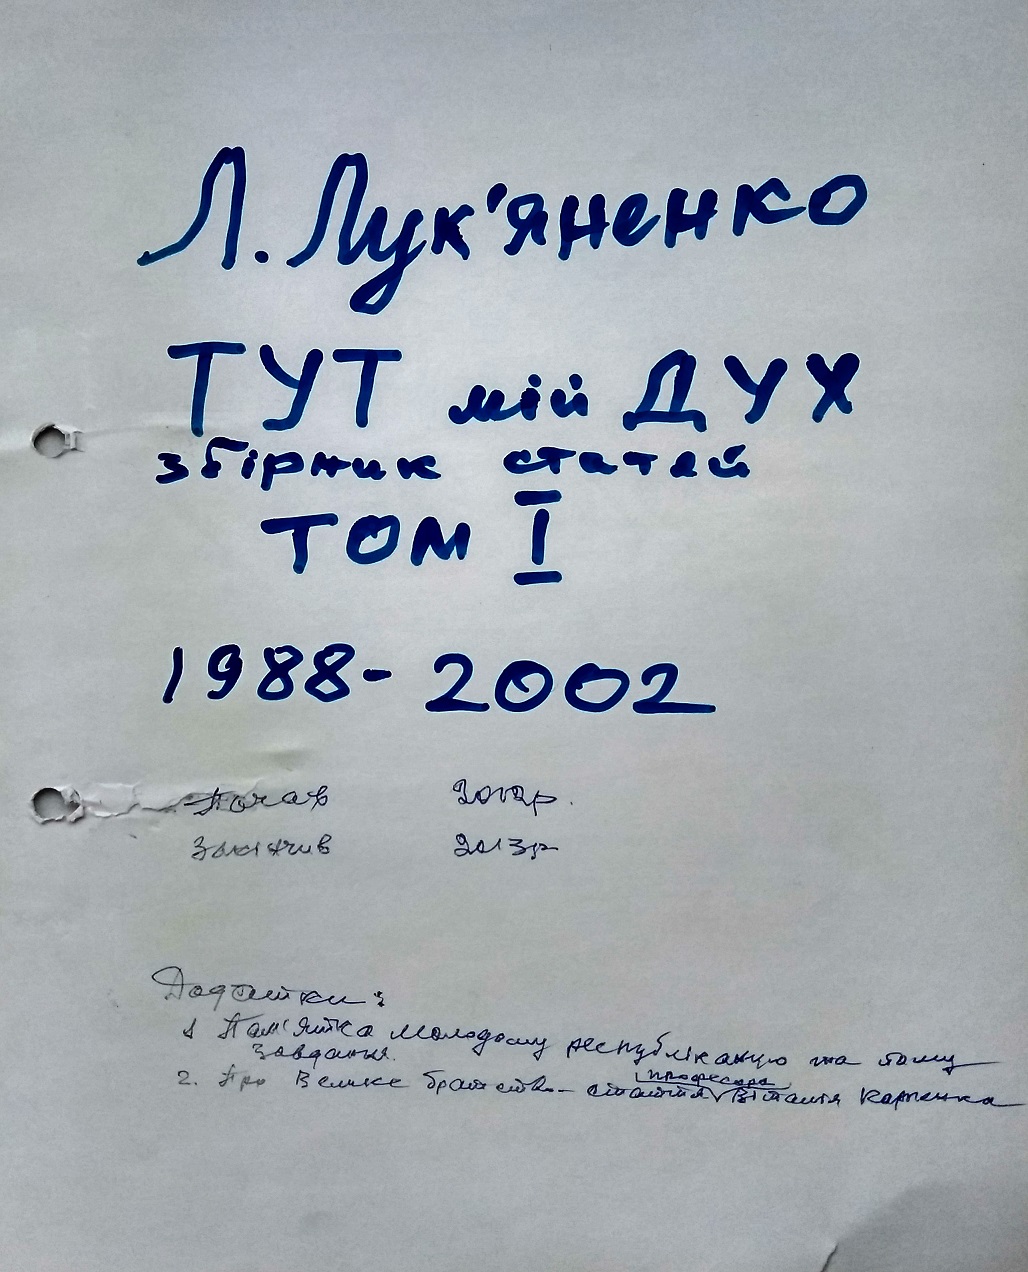 Л. Лук'яненко
ТУТ мій ДУХ
збірник статей
ТОМ I
1988-2002
Почав 2012р.
Закінчив 2013р
Додатки:
1 Пам'ятка молодому республіканцю та
завдання.
2. Про Велике братство – стаття професора Віталія Карпенка